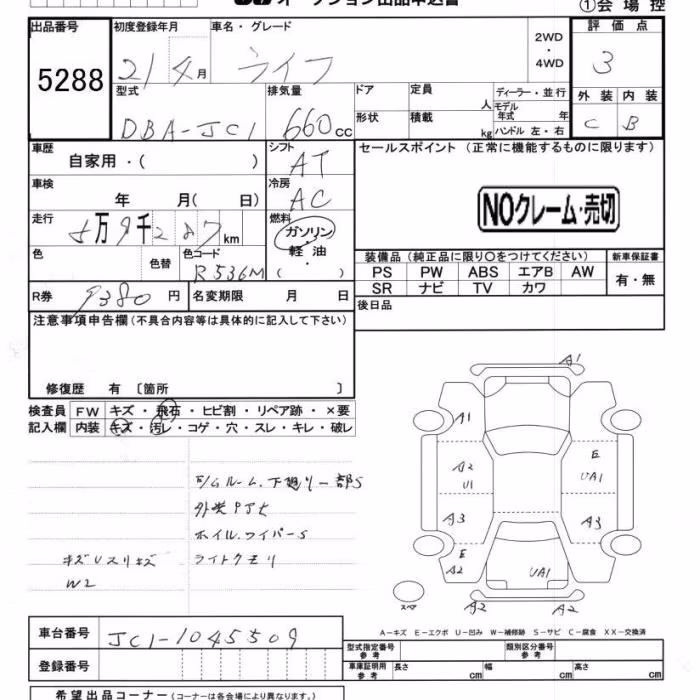 オークション出品申込書
①会場控
出品番号 初度登録年月 車名・グレード 2WD・4WD 評価点
5288 21/4月 ライフ 3
型式 排気量 ドア 定員 人 ディーラー・並行 外装 内装
DBA-JC1 660cc 形状 積載 kg モデル年式 年 ハンドル 左・右 C B
車歴 シフト セールスポイント(正常に機能するものに限ります)
自家用・( ) AT
車検 冷房
年 月( 日) AC NOクレーム・売切
走行 燃料
5万9千287km ガソリン・軽油
色 色替 色コード ( ) 装備品(純正品に限り○をつけてください) 新車保証書
R536M PS PW ABS エアB AW 有・無
SR ナビ TV カワ
R券 9380円 名変期限 月 日 後日品
注意事項申告欄(不具合内容等は具体的に記入して下さい)
修復歴 有 〔箇所 〕
検査員 FW キズ・飛石・ヒビ割・リペア跡・×要
記入欄 内装 キズ・汚レ・コゲ・穴・スレ・キレ・破レ
A1
A1
A2 E
U1 UA1
A3 A3
E
A2 UA1 A2
スペア A2 A2
下廻り一部S
ホイル.ワイパーS
キズUスリキズ ライトクモリ
W2
A-キズ E-エクボ U-凹み W-補修跡 S-サビ C-腐食 XX-交換済
車台番号 JC1-1045509 型式指定番号 参考 類別区分番号 参考
登録番号 車庫証明用 参考 長さ cm 幅 cm 高さ cm
希望出品コーナー(コーナーは各会場により異なります。)